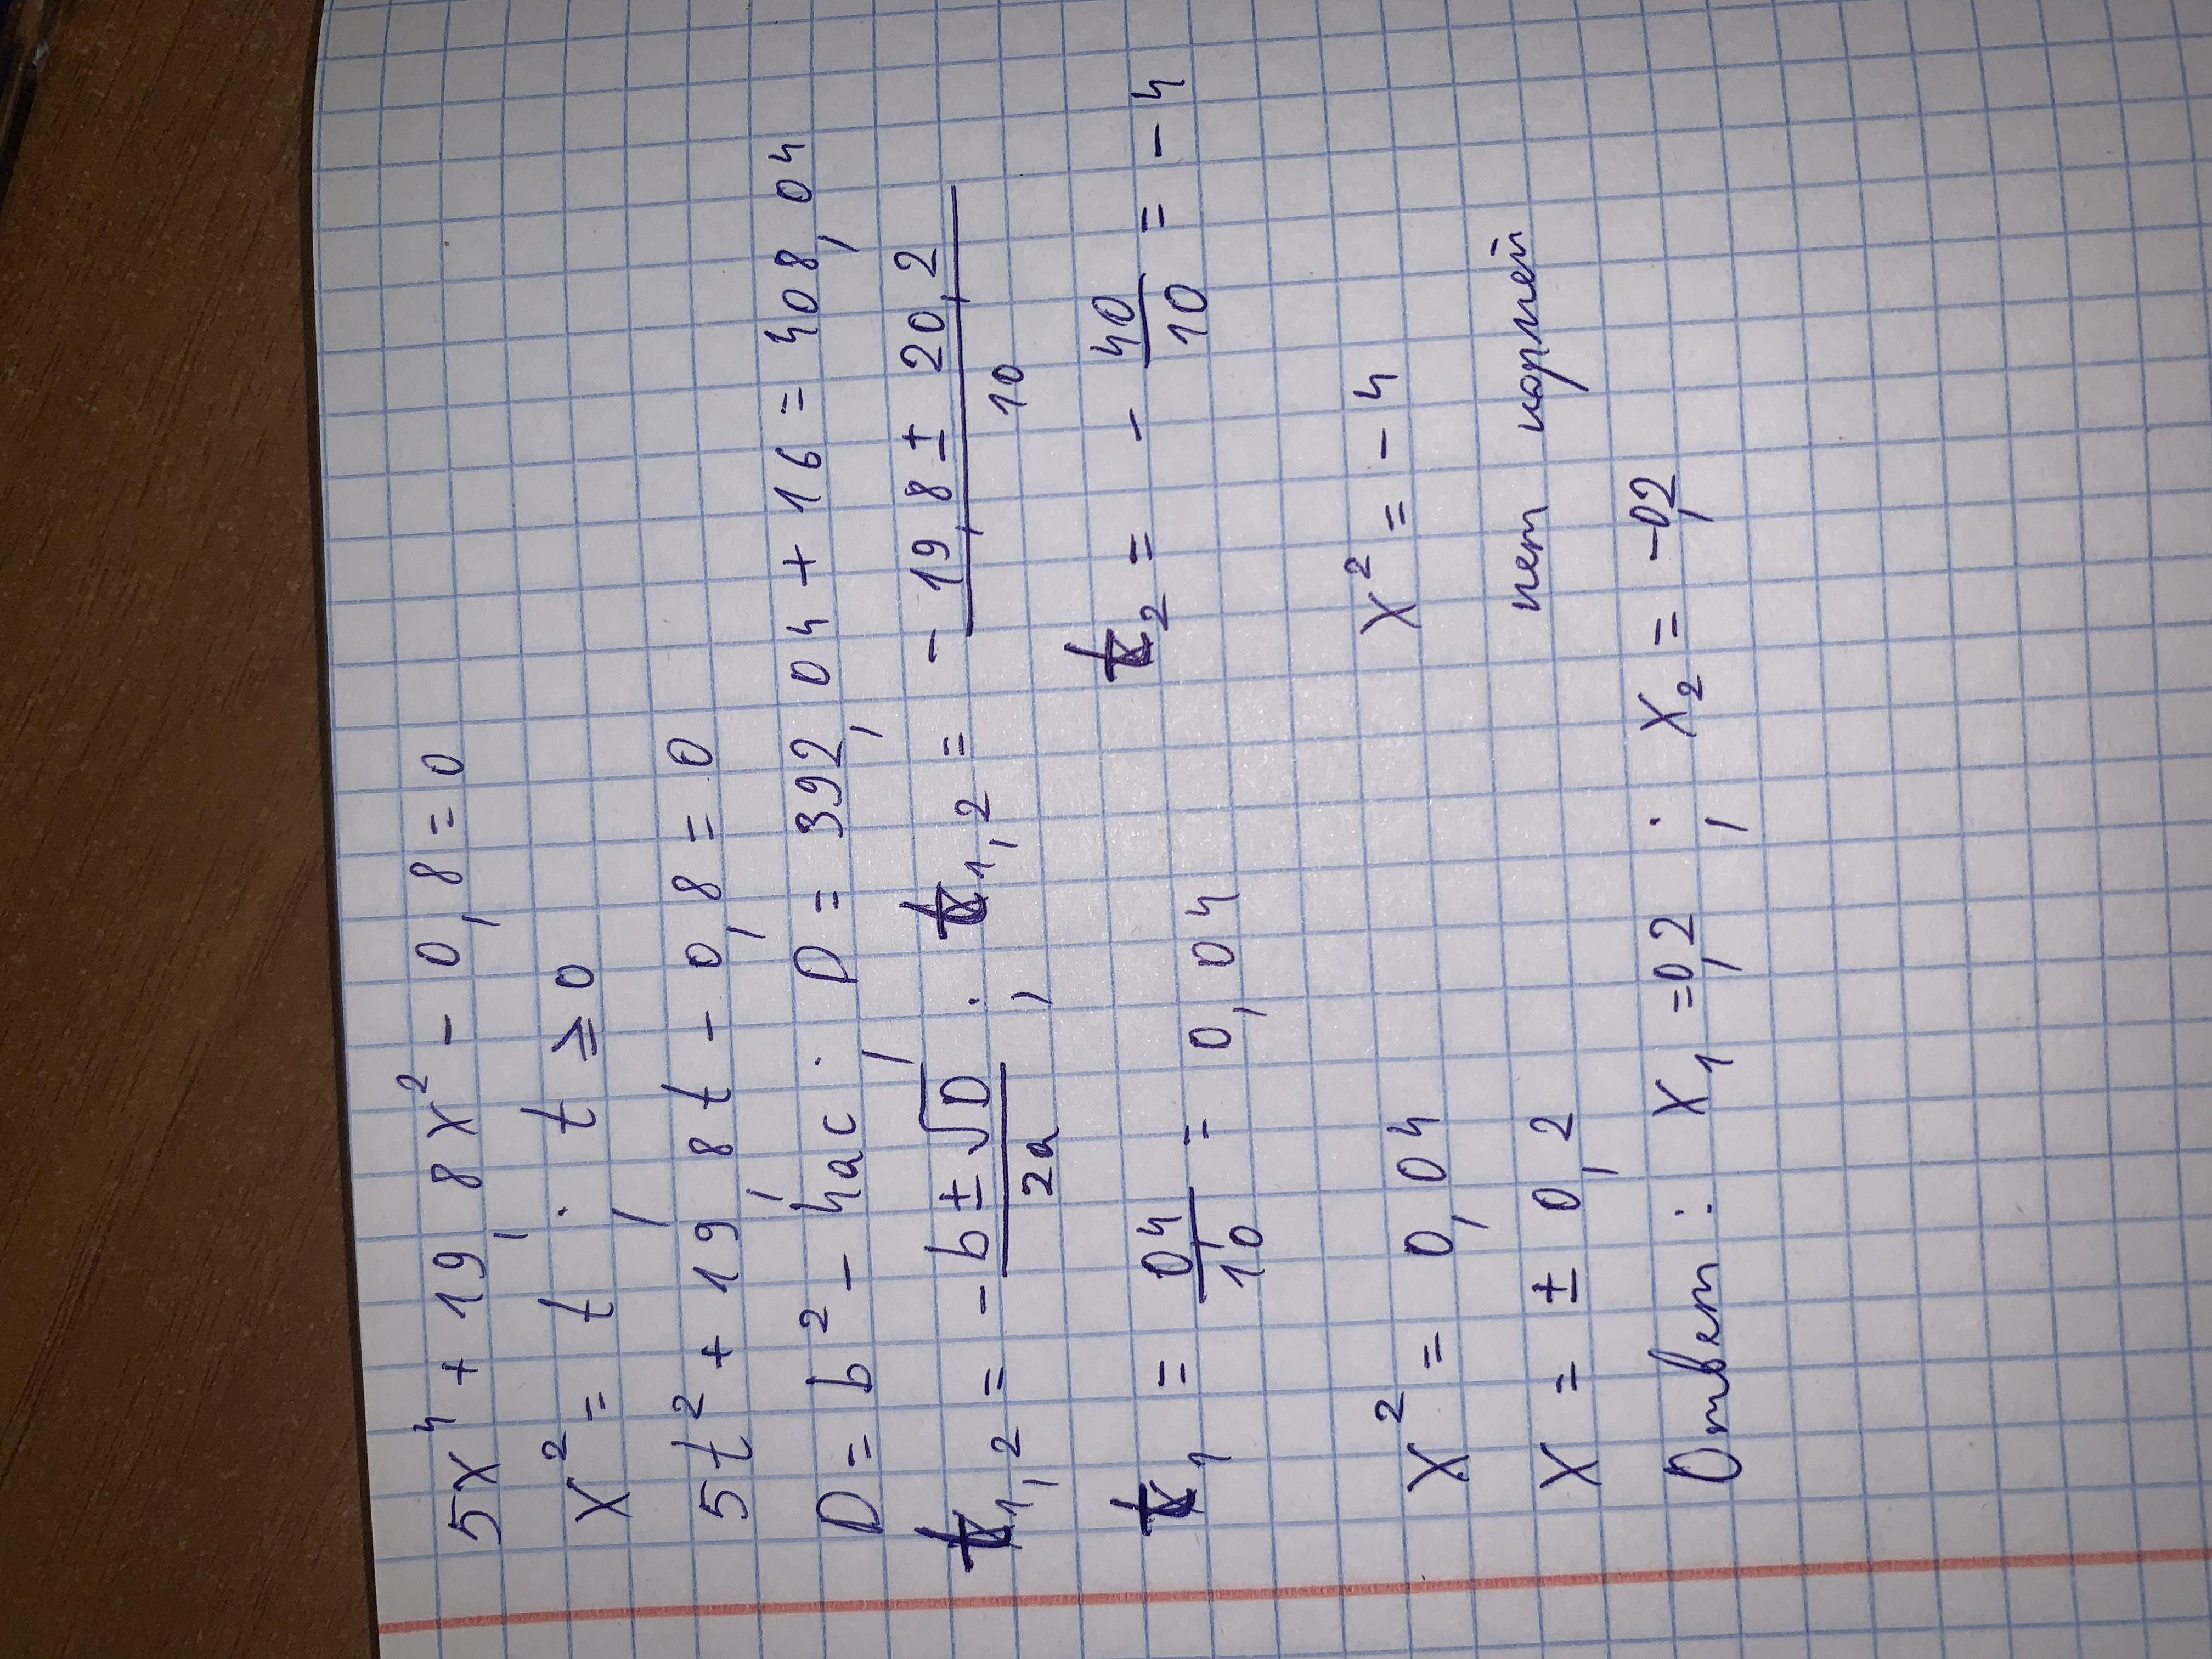 5x⁴ + 19,8x² - 0,8 = 0
x² = t ; t ≥ 0
5t² + 19,8t - 0,8 = 0
D = b² - 4ac ; D = 392,04 + 16 = 408,04
t₁,₂ = (-b ± √D)/(2a) ; t₁,₂ = (-19,8 ± 20,2)/10
t₁ = 0,4/10 = 0,04 t₂ = -40/10 = -4
x² = 0,04 x² = -4
x = ± 0,2 нет корней
Ответ: x₁ = 0,2 ; x₂ = -0,2